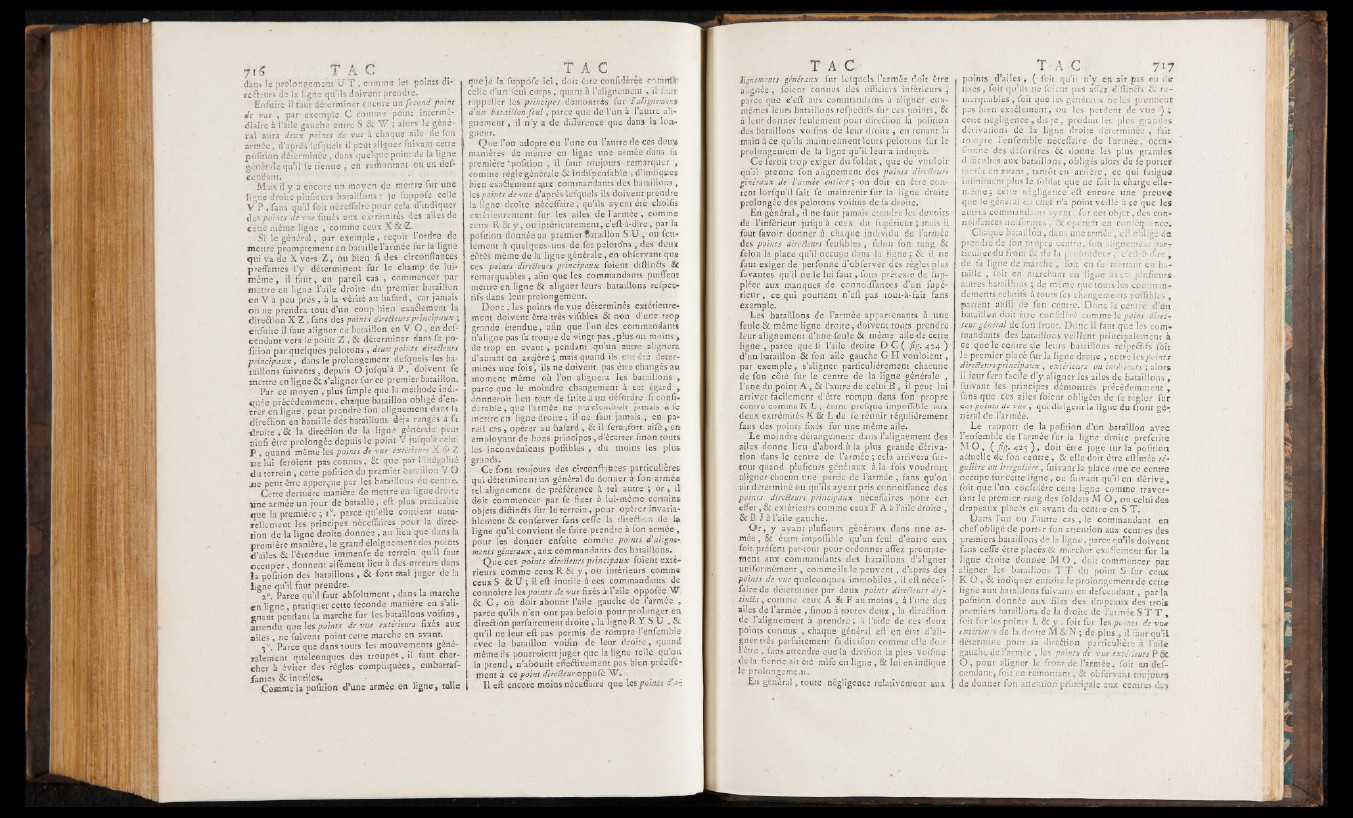 716 T A C
dans le prolongement U T, comme les points di-
recteurs de la ligne qu'ils doivent prendre.
Ensuite il faut déterminer encore un second point
de vue, par exemple C comme point intermé-
diaire à l'aile gauche entre S & W ; alors le géné-
ral aura deux points de vue à chaque aile de son
armée, d'après lesquels il peut aligner suivant cette
position déterminée, dans quelque point de la ligne
générale qu'il se tienne, en remontant ou en des-
cendant.
Mais il y a encore un moyen de mettre sur une
ligne droite plusieurs bataillons : je suppose celle
V P, sans qu'il soit nécessaire pour cela d'indiquer
des points de vue situés aux extrémités des ailes de
cette même ligne, comme ceux X & Z.
Si le général, par exemple, reçoit l'ordre de
mettre promptement en bataille l'armée sur la ligne
qui va de X vers Z, ou bien si des circonstances
pressantes l'y déterminent sur le champ de lui-
même, il faut, en pareil cas, commencer par
mettre en ligne l'aile droite du premier bataillon
en V à peu près, à la vérité au hasard, car jamais
on ne prendra tout d'un coup bien exactement la
direction X Z, sans des points directeurs principaux ;
ensuite il faut aligner ce bataillon en V O, en des-
cendant vers le point Z, & déterminer dans sa po-
sition par quelques pelotons, deux points directeurs
principaux, dans le prolongement desquels les ba-
taillons suivants, depuis O jusqu'à P, doivent se
mettre en ligne & s'aligner sur ce premier bataillon.
Par ce moyen, plus simple que la méthode indi-
quée précédemment, chaque bataillon obligé d'en-
trer en ligne, peut prendre son alignement dans la
direction en bataille des bataillons déja rangés à sa
droite, & la direction de la ligne générale peut
ainsi être prolongée depuis le point V jusqu'à celui
P, quand même les points de vue extérieurs X & Z
ne lui seroient pas connus, & que par l'inégalité
du terrein, cette position du premier bataillon V O
ne peut être apperçue par les bataillons du centre.
Cette dernière manière de mettre en ligne droite
une armée un jour de bataille, est plus praticable
que la première ; 1°. parce qu'elle contient natu-
rellement les principes nécessaires pour la direc-
tion de la ligne droite donnée, au lieu que dans la
première manière, le grand éloignement des points
d'ailes & l'étendue immense de terrein qu'il faut
occuper, donnent aisément lieu à des erreurs dans
la position des bataillons, & font mal juger de la
ligne qu'il faut prendre.
2°. Parce qu'il faut absolument, dans la marche
en ligne, pratiquer cette seconde manière en s'ali-
gnant pendant la marche sur les bataillons voisins,
attendu que les points de vue extérieurs fixés aux
ailes, ne suivent point cette marche en avant.
3°. Parce que dans tous les mouvements géné-
ralement quelconques des troupes, il faut cher-
cher à éviter des règles compliquées, embarras-
santes & inutiles.
Comme la position d'une armée en ligne, telle
T A C
que je la suppose ici, doit être considérée comme
celle d'un seul corps, quant à l'alignement, il faut
rappeller les principes démontrés sur l'alignement
d'un bataillon seul, parce que de l'un à l'autre ali-
gnement, il n'y a de différence que dans la lon-
gueur.
Que l'on adopte ou l'une ou l'autre de ces deux
manières de mettre en ligne une armée dans sa
première position, il faut toujours remarquer,
comme règle générale & indispensable, d'indiquer
bien exactement aux commandants des bataillons,
les points de vue d'après lesquels ils doivent prendre
la ligne droite nécessaire, qu'ils ayent été choisis
extérieurement sur les ailes de l'armée, comme
ceux R & y, ou intérieurement, c'est-à-dire, par la
position donnée au premier bataillon S U, ou seu-
lement à quelques-uns de ses pelotons, des deux
côtés même de la ligne générale, en observant que
ces points directeurs principaux soient distincts &
remarquables, afin que les commandants puissent
mettre en ligne & aligner leurs bataillons respec-
tifs dans leur prolongement.
Donc, les points de vue déterminés extérieure-
ment doivent être très visibles & non d'une trop
grande étendue, afin que l'un des commandants
n'aligne pas sa troupe de vingt pas, plus ou moins,
de trop en avant, pendant qu'un autre alignera
d'autant en arrière ; mais quand ils ont été déter-
minés une fois, ils ne doivent pas être changés au
moment même où l'on alignera les bataillons,
parce que le moindre changement à cet égard,
donneroit lieu tout de suite à un désordre si consi-
dérable, que l'armée ne parviendroit jamais à se
mettre en ligne droite ; il ne faut jamais, en pa-
reil cas, opérer au hasard, & il sera fort aisé, en
employant de bons principes, d'écarter sinon touts
les inconvénients possibles, du moins les plus
grands.
Ce sont toujours des circonstances particulières
qui déterminent un général de donner à son armée
tel alignement de préférence à tel autre ; or, il
doit commencer par se fixer à lui-même certains
objets distincts sur le terrein, pour opérer invaria-
blement & conserver sans cesse la direction de la
ligne qu'il convient de faire prendre à son armée,
pour les donner ensuite comme points d'aligne-
ments généraux, aux commandants des bataillons.
Que ces points directeurs principaux soient exté-
rieurs comme ceux R & y, ou intérieurs comme
ceux S & U ; il est inutile à ces commandants de
connoître les points de vue fixés à l'aile opposée W
& C, où doit aboutir l'aile gauche de l'armée,
parce qu'ils n'en ont pas besoin pour prolonger en
direction parfaitement droite, la ligne R Y S U, &
qu'il ne leur est pas permis de rompre l'ensemble
avec le bataillon voisin de leur droite, quand
même ils pourroient juger que la ligne telle qu'on
la prend, n'aboutit effectivement pas bien précisé-
ment à ce point directeur opposé W.
Il est encore moins nécessaire que les points d'a-
T A C
lignements généraux sur lesquels l'armée doit être
alignée, soient connus des officiers inférieurs,
parce que c'est aux commandants à aligner eux-
mêmes leurs bataillons respectifs sur ces points, &
à leur donner seulement pour direction la position
des bataillons voisins de leur droite, en tenant la
main à ce qu'ils maintiennent leurs pelotons sur le
prolongement de la ligne qu'il leur a indiqué.
Ce seroit trop exiger du soldat, que de vouloir
qu'il prenne son alignement des points directeurs
généraux de l'armée entière ; on doit en être con-
tent lorsqu'il sait se maintenir sur la ligne droite
prolongée des pelotons voisins de sa droite.
En général, il ne faut jamais étendre les devoirs
de l'inférieur jusqu'à ceux du supérieur ; mais il
faut savoir donner à chaque individu de l'armée
des points directeurs sensibles, selon son rang &
selon la place qu'il occupe dans la ligne ; & il ne
faut exiger de personne d'observer des règles plus
savantes qu'il ne le lui faut, sous prétexte de sup-
pléer aux manques de connoissances d'un supé-
rieur, ce qui pourtant n'est pas tout-à-fait sans
exemple.
Les bataillons de l'armée appartenants à une
seule & même ligne droite, doivent touts prendre
leur alignement d'une seule & même aile de cette
ligne, parce que si l'aile droite D C ( fig. 424 )
d'un bataillon & son aile gauche G H vouloient,
par exemple, s'aligner particulièrement chacune
de son côté sur le centre de la ligne générale,
l'une du point A, & l'autre de celui B, il peut lui
arriver facilement d'être rompu dans son propre
centre comme K L, étant presque impossible aux
deux extrémités K & L de se réunir régulièrement
sans des points fixés sur une même aile.
Le moindre dérangement dans l'alignement des
ailes donne lieu d'abord à la plus grande dériva-
tion dans le centre de l'armée ; cela arrivera sur-
tout quand plusieurs généraux à la fois voudront
aligner chacun une partie de l'armée, sans qu'on
ait déterminé ou qu'ils ayent pris connoissance des
points directeurs principaux necessaires pour cet
effet, & extérieurs comme ceux F A à l'aile droite,
& B J à l'aile gauche.
Or, y ayant plusieurs généraux dans une ar-
mée, & étant impossible qu'un seul d'entre eux
soit présent par-tout pour ordonner assez prompte-
ment aux commandants des bataillons d'aligner
uniformément, comme ils le peuvent, d'après des
points de vue quelconques immobiles, il est néces-
saire de déterminer par deux points directeurs dis-
tincts, comme ceux A & F au moins, à l'une des
ailes de l'armée, sinon à toutes deux, la direction
de l'alignement à prendre ; à l'aide de ces deux
points connus, chaque général est en état d'ali-
gner très parfaitement sa division comme elle doit
l'être, sans attendre que la division la plus voisine
de la sienne ait été mise en ligne, & lui en indique
le prolongement.
En général, toute négligence relativement aux
T A C 717
points d'ailes, ( soit qu'il n'y en ait pas eu de
fixés, soit qu'ils ne soient pas assez distincts & re-
marquables, soit que les généraux ne les prennent
pas bien exactement, ou les perdent de vue ) ;
cette négligence, dis-je, produit les plus grandes
dérivations de la ligne droite déterminée, fait
rompre l'ensemble necessaire de l'armée, occa-
sionne des désordres & donne les plus grandes
difficultés aux bataillons, obligés alors de se porter
tantôt en avant, tantôt en arrière, ce qui fatigue
infiniment plus le soldat que ne fait la charge elle-
même ; cette négligence est encore une preuve
que le général en chef n'a point veillé à ce que les
autres commandants ayent, sur cet objet, des con-
noissances uniformes, & opèrent en conséquence.
Chaque bataillon, dans une armée, est obligé de
prendre de son propre centre, son alignement par-
ticulier du front & de la profondeur, c'est-à-dire,
de sa ligne de marche, soit en se mettant en ba-
taille, soit en marchant en ligne avec plusieurs
autres bataillons ; de même que touts les comman-
dements relatifs à touts ses changements possibles,
partent aussi de son centre. Donc le centre d'un
bataillon doit être considéré comme le point direc-
teur général de son front. Donc il faut que les com-
mandants des bataillons veillent principalement à
ce que le centre de leurs bataillons respectifs soit
le premier placé sur la ligne droite, entre les points
directeurs principaux, extérieurs ou intérieurs ; alors
il leur sera facile d'y aligner les ailes de bataillons,
suivant les principes démontrés précédemment,
sans que ces ailes soient obligées de se régler sur
ces points de vue, qui dirigent la ligne du front gé-
néral de l'armée.
Le rapport de la position d'un bataillon avec
l'ensemble de l'armée sur la ligne droite prescrite
M O, ( fig. 425 ), doit être jugé sur la position
actuelle de son centre, & elle doit être estimée ré-
gulière ou irrégulière, suivant la place que ce centre
occupe sur cette ligne, ou suivant qu'il en dérive,
soit que l'on considère cette ligne comme traver-
sant le premier rang des soldats M O, ou celui des
drapeaux placés en avant du centre en S T.
Dans l'un ou l'autre cas, le commandant en
chef obligé de porter son attention aux centres des
premiers bataillons de la ligne, parce qu'ils doivent
sans cesse être placés & marcher exactement sur la
ligne droite donnée M O, doit commencer par
aligner les bataillons T T du point S sur ceux
K O, & indiquer ensuite le prolongement de cette
ligne aux bataillons suivants en descendant, par la
position donnée aux files des drapeaux des trois
premiers bataillons de la droite de l'armée S T T,
soit sur les points L & y, soit sur les points de vue
extérieurs de la droite M & N ; de plus, il faut qu'il
détermine pour sa direction particulière à l'aile
gauche de l'armée, les points de vue extérieurs P &
O, pour aligner le front de l'armée, soit en des-
cendant, soit en remontant, & observant toujours
de donner son attention principale aux centres des